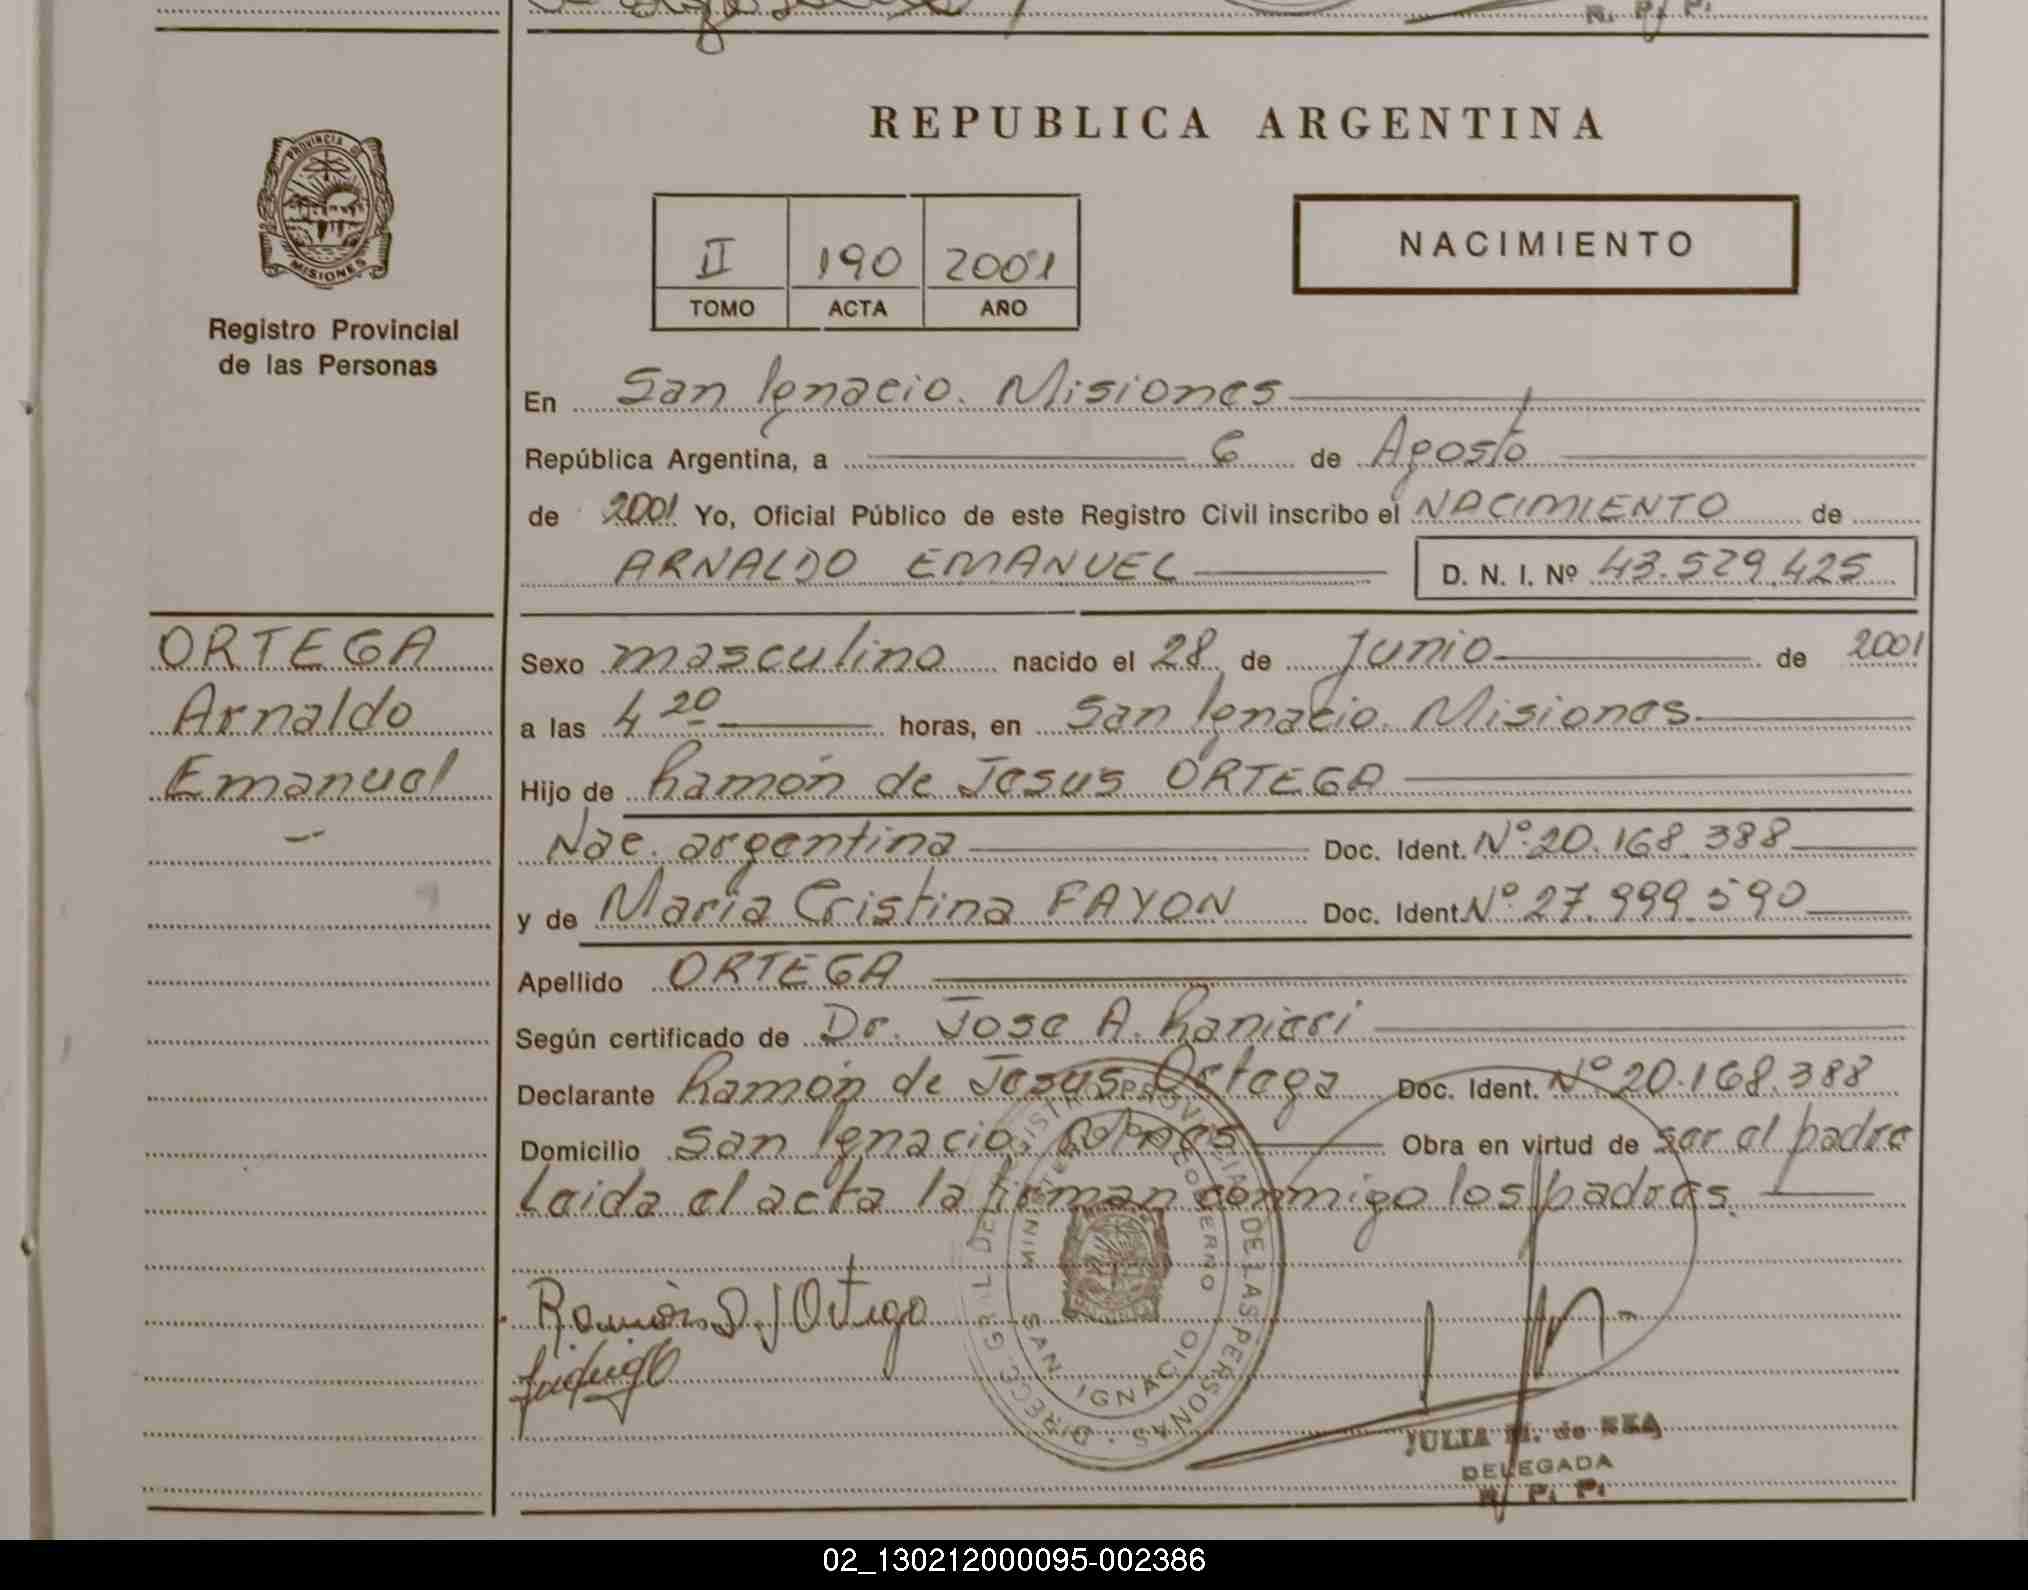 R. P. P.
PROVINCIA DE
MISIONES
Registro Provincial
de las Personas
REPUBLICA ARGENTINA
II 190 2001
TOMO ACTA AÑO
NACIMIENTO
En San Ignacio. Misiones
República Argentina, a 6 de Agosto
de 2001 Yo, Oficial Público de este Registro Civil inscribo el NACIMIENTO de
ARNALDO EMANUEL D. N. I. Nº 43.529.425
ORTEGA
Arnaldo
Emanuel
Sexo masculino nacido el 28 de Junio de 2001
a las 4 20 horas, en San Ignacio. Misiones
Hijo de Ramón de Jesus ORTEGA
Nac. argentina Doc. Ident. Nº 20.168.388
y de Maria Cristina FAYON Doc. Ident. Nº 27.999.590
Apellido ORTEGA
Según certificado de Dr. Jose A. Ranieri
Declarante Ramón de Jesus Ortega Doc. Ident. Nº 20.168.388
Domicilio San Ignacio, Obra en virtud de ser el padre
Leida el acta la firman conmigo los padres.
Ramón D. J Ortega
DIRECC GRAL DEL REGISTRO PROVINCIAL DE LAS PERSONAS
MINISTERIO GOBIERNO
SAN IGNACIO
JULIA M. de
DELEGADA
R. P. P.
02_130212000095-002386